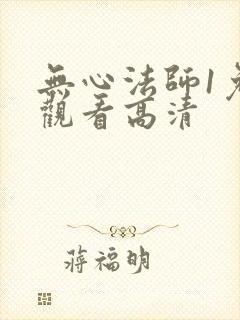 無心法師1免
觀看高清
蔣福明